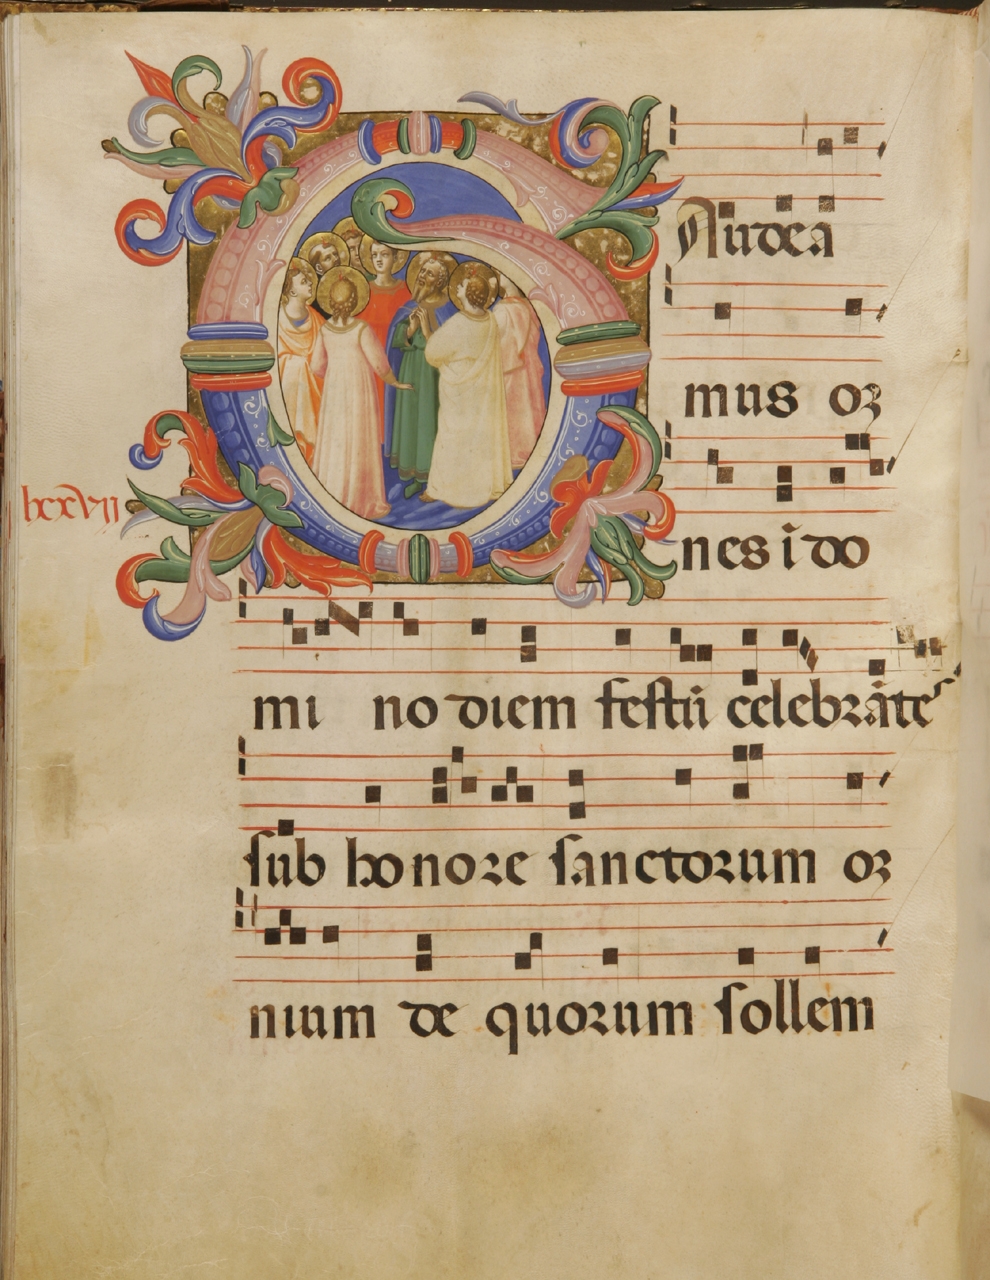 G Audea
mus oꝛ
nes i do
lxxvii
mi no diem festū celebrāte
sub honore sanctorum oꝛ
nium de quorum sollem